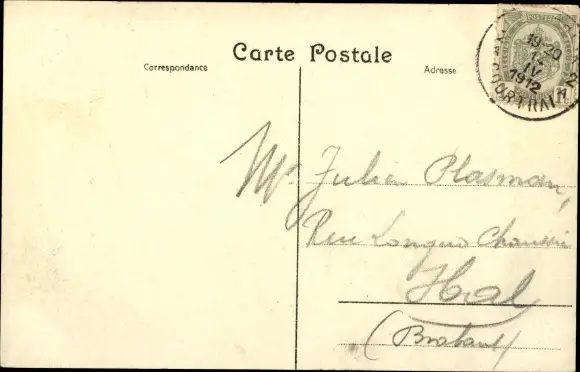 Carte Postale
Correspondance
Adresse
COURTRAI
19-20
12
IV
1912
Mr Julien Plasman,
Rue Longue Chaussée
Hal
(Brabant)